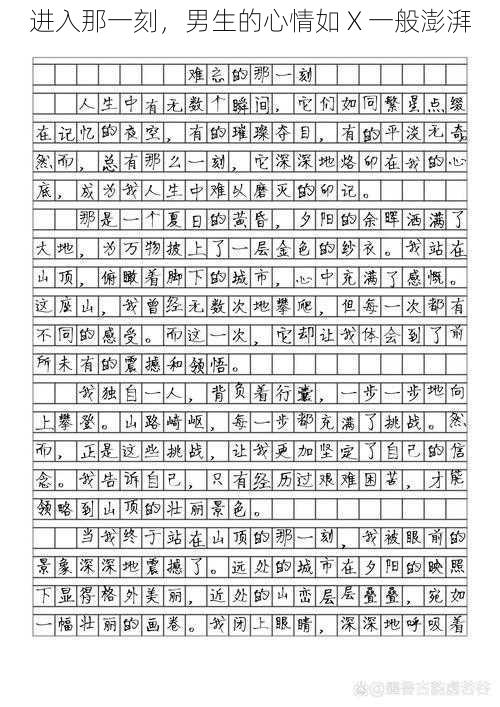 进入那一刻，男生的心情如 X 一般澎湃
难忘的那一刻
人生中有无数个瞬间，它们如同繁星点缀
在记忆的夜空，有的璀璨夺目，有的平淡无奇
然而，总有那么一刻，它深深地烙印在我的心
底，成为我人生中难以磨灭的印记。
那是一个夏日的黄昏，夕阳的余晖洒满了
大地，为万物披上了一层金色的纱衣。我站在
山顶，俯瞰着脚下的城市，心中充满了感慨。
这座山，我曾经无数次地攀爬，但每一次都有
不同的感受。而这一次，它却让我体会到了前
所未有的震撼和领悟。
我独自一人，背负着行囊，一步一步地向
上攀登。山路崎岖，每一步都充满了挑战。然
而，正是这些挑战，让我更加坚定了自己的信
念。我告诉自己，只有经历过艰难困苦，才能
领略到山顶的壮丽景色。
当我终于站在山顶的那一刻，我被眼前的
景象深深地震撼了。远处的城市在夕阳的映照
下显得格外美丽，近处的山峦层层叠叠，宛如
一幅壮丽的画卷。我闭上眼睛，深深地呼吸着